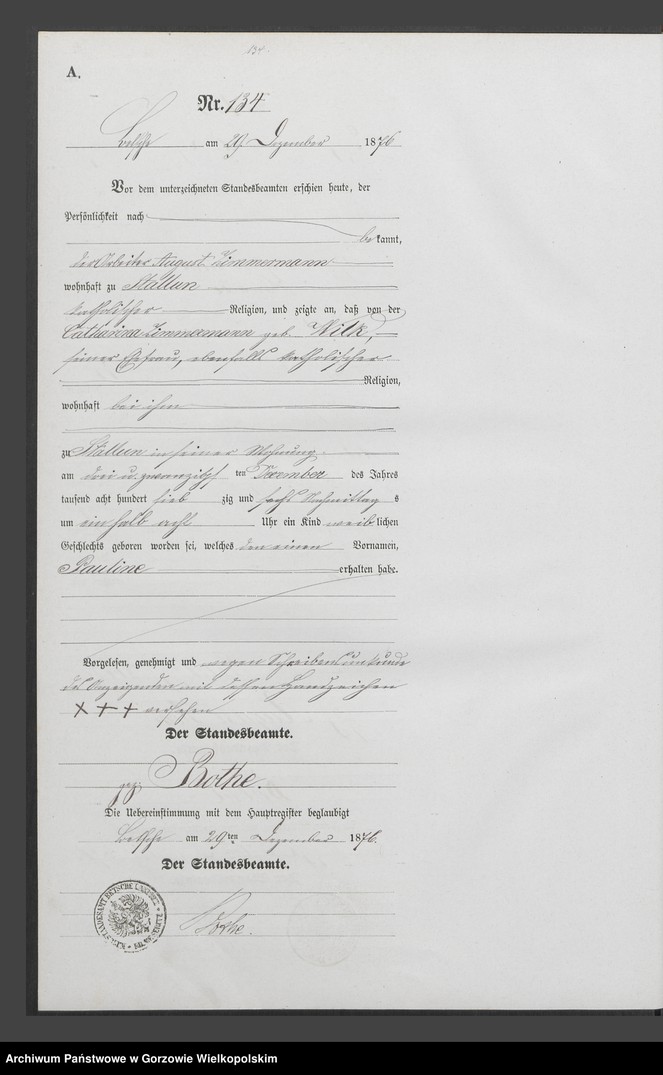 134
A.
Nr. 134
Betsche am 29 Dezember 1876
Vor dem unterzeichneten Standesbeamten erschien heute, der
Persönlichkeit nach
bekannt,
der Arbeiter August Zimmermann
wohnhaft zu Stallun
katholischer Religion, und zeigte an, daß von der
Catharina Zimmermann geb. Wilk,
seiner Ehefrau, ebenfalls katholischer
Religion,
wohnhaft bei ihm
zu Stallun in seiner Wohnung
am drei u. zwanzigsten Dezember des Jahres
tausend acht hundert siebzig und sechs Nachmittags
um ein halb acht Uhr ein Kind weiblichen
Geschlechts geboren worden sei, welches den einen Vornamen,
Pauline erhalten habe.
Vorgelesen, genehmigt und wegen Schreibensunkunde
des Anzeigenden mit dessen Handzeichen
+++ versehen
Der Standesbeamte.
gez. Bothe.
Die Uebereinstimmung mit dem Hauptregister beglaubigt
Betsche am 29ten Dezember 1876.
Der Standesbeamte.
Bothe.
Archiwum Państwowe w Gorzowie Wielkopolskim